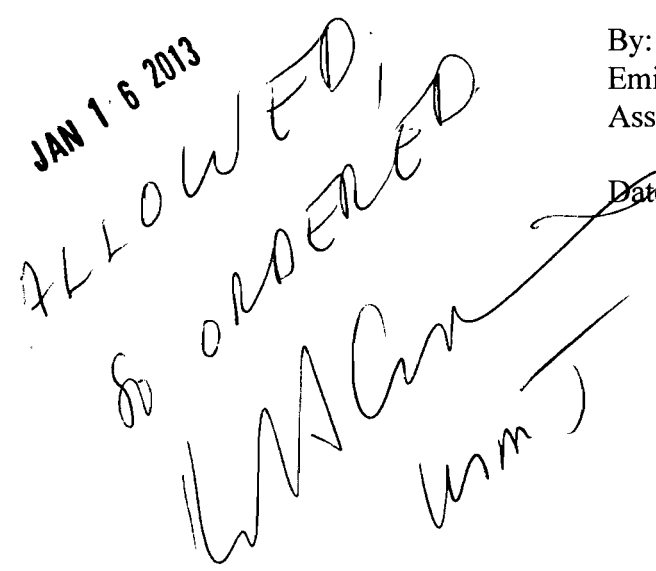 JAN 16 2013
ALLOWED,
So ORDERED
USMJ
By:
Emi
Ass
Date